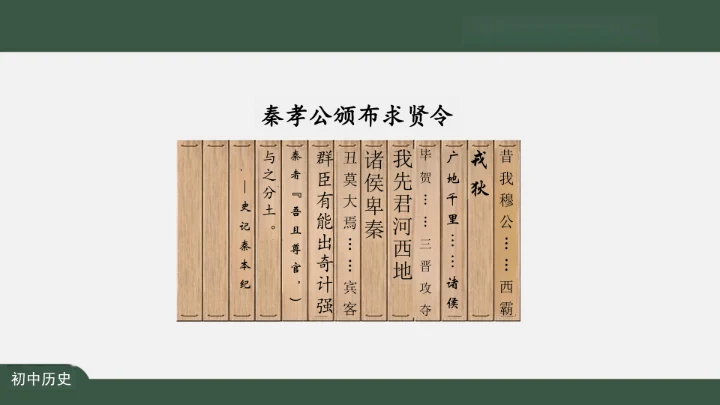 秦孝公颁布求贤令
昔我穆公……西霸
戎狄
广地千里……诸侯
毕贺……三晋攻夺
我先君河西地
诸侯卑秦
丑莫大焉……宾客
群臣有能出奇计强
秦者『吾且尊官，）
与之分土。
—史记秦本纪
初中历史